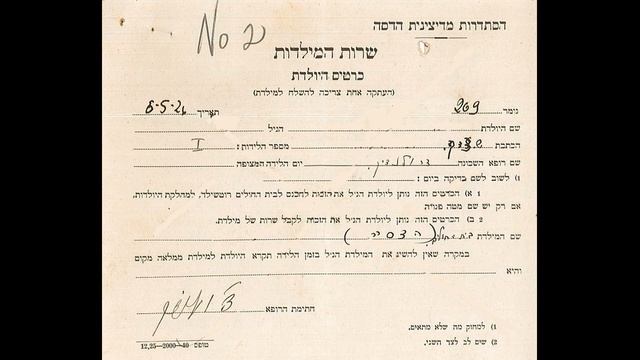 No 2
הסתדרות מדיצינית הדסה
שרות המילדות
כרטים היולדת
(העתקה אחת צריכה להשלח למילדת)
נומר 209 תאריך 6-5-26
שם היולדת הגיל
הכתבת מספר הלידות: I
שם רופא השכונה יום הלידה המצופה
(1 לשוב לשם בדיקה ביום:
1 א) הכרטיס הזה נותן ליולדת הנ״ל את הזכות להכנס לבית החולים רוטשילד, למחלקת היולדות,
אם רק יש שם מטה פנויה
2 ב) הכרטיס הזה נותן ליולדת הנ״ל את הזכות לקבל שרות של מילדת.
שם המילדת (הדסה)
במקרה שאין להשיג את המילדת הנ״ל בזמן הלידה תקרא היולדת למילדת ממלאה מקום
והיא
חתימת הרופא
1) למחוק מה שלא מתאים.
2) שים לב לצד השני.
טופס 40—2000—12,25